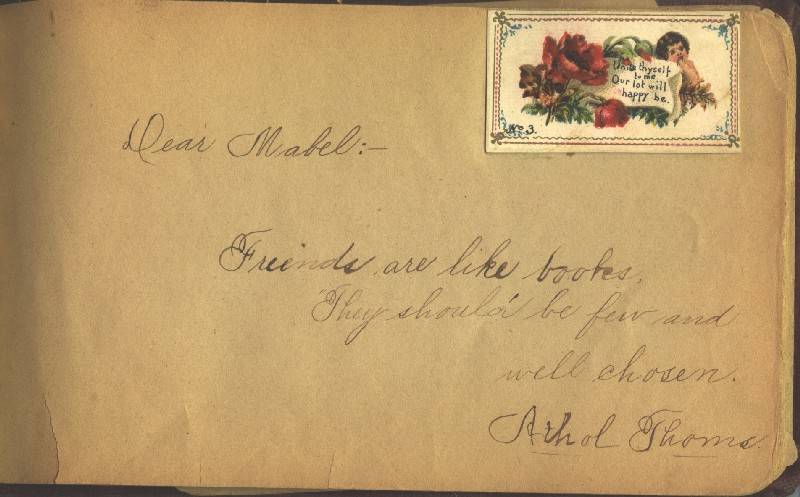 Unite thyself
to me
Our lot will
happy be.
No 3.
Dear Mabel:—
Friends are like books,
They should be few and
well chosen.
Athol Thoms.